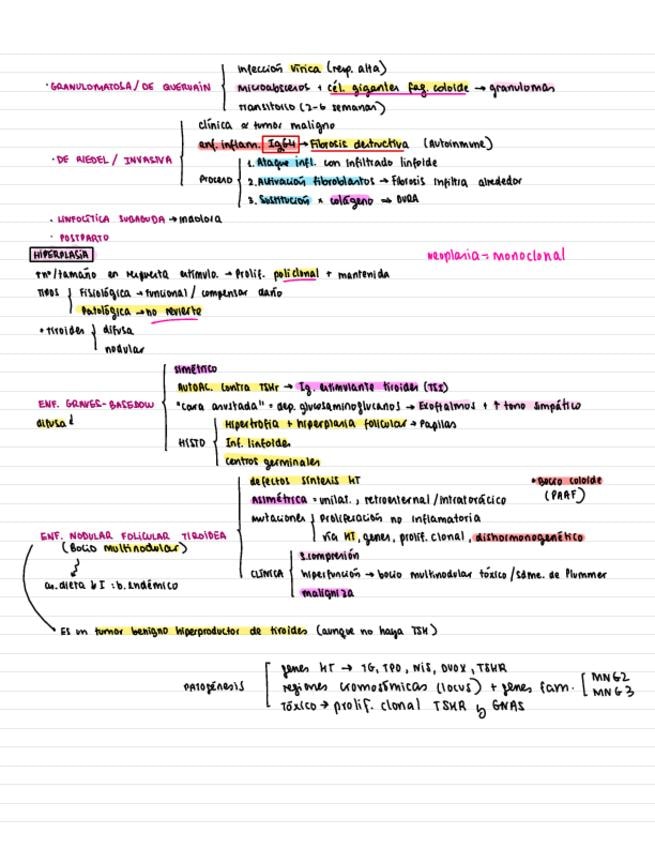 infección vírica (resp. alta)
· GRANULOMATOSA / DE QUERVAIN microabscesos + cél. gigantes fag. coloide → granulomas
Transitorio (2-6 semanas)
clínica ∝ tumor maligno
enf. inflam. IgG4 → Fibrosis destructiva (Autoinmune)
· DE RIEDEL / INVASIVA
1. Ataque infl. con infiltrado linfoide
Proceso 2. Activación fibroblastos → Fibrosis infiltra alrededor
3. Sustitución x colágeno ⇒ DURA
· LINFOCÍTICA SUBAGUDA → indolora
· POSTPARTO
HIPERPLASIA neoplasia = monoclonal
↑nº/tamaño en respuesta estímulo. → Prolif. policlonal + mantenida
TIPOS Fisiológica → funcional / compensar daño
Patológica → no revierte
* tiroides difusa
nodular
simétrico
AUTOAC. contra TSHr → Ig. estimulante tiroides (TSI)
ENF. GRAVES-BASEDOW "cara asustada" = dep. glucosaminoglucanos → Exoftalmos + ↑ tono simpático
difusa
Hipertrofia + hiperplasia folicular → Papilas
HISTO Inf. linfoide.
centros germinales
defectos síntesis HT * Bocio coloide
ASIMÉTRICA = unilat., retroesternal / intratorácico (PAAF)
mutaciones Proliferación no inflamatoria
ENF. NODULAR FOLICULAR TIROIDEA vía HT, genes, prolif. clonal, dishormonogenético
(Bocio multinodular) S. compresión
CLÍNICA hiperfunción → bocio multinodular tóxico / Sdme. de Plummer
au. dieta ↓ I : b. endémico maligniza
Es un tumor benigno hiperproductor de tiroides (aunque no haya TSH)
genes HT → TG, TPO, NIS, DUOX, TSHR
PATOGÉNESIS regiones cromosómicas (locus) + genes fam. MNG2
MNG3
Tóxico → prolif. clonal TSHR y GNAS